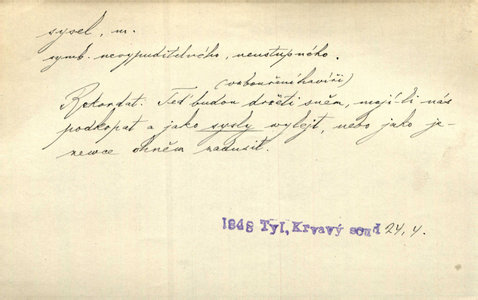 sysel, m.
symb. nevypuditelného, neústupného.
(vzbouření havíři)
Rekordat: Teď budou držeti sněm, mají-li nás
podkopat a jako sysly vylejt, nebo jako je-
zevce ohněm zadusit.
1848 Tyl, Krvavý soud 24, 4.